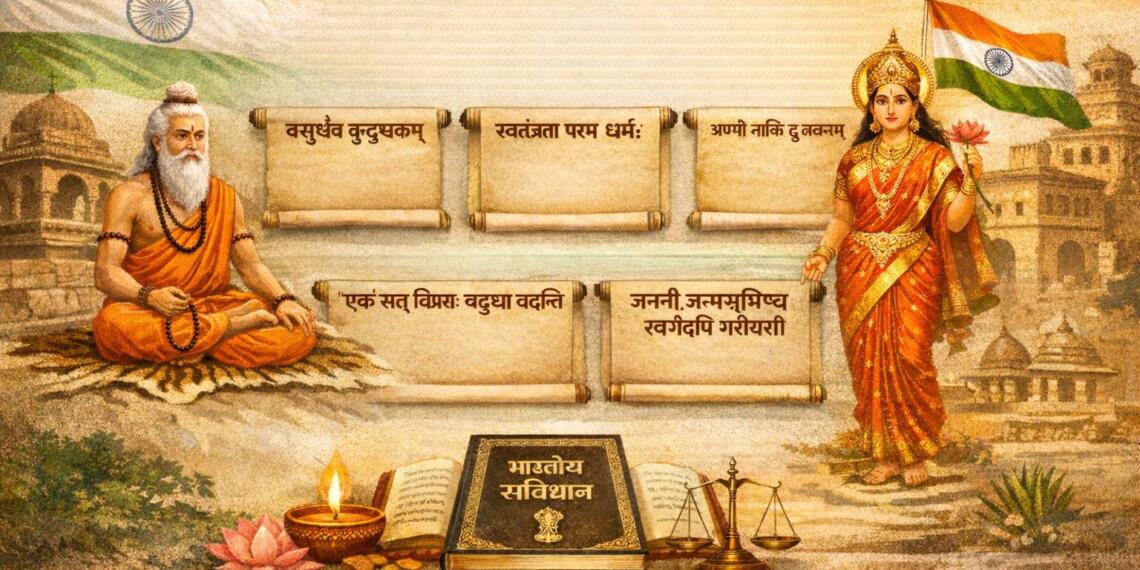 वसुधैव वुन्दुम्बकम्
स्वतंत्रता परम धर्मः
अण्मी नाकि दु लवनम्
"एकं सत् विप्राः वदुधा वदन्ति
जननी. जन्मसूमिष्च
स्वर्गदपि गरीयसी
भारतोय
सविधान